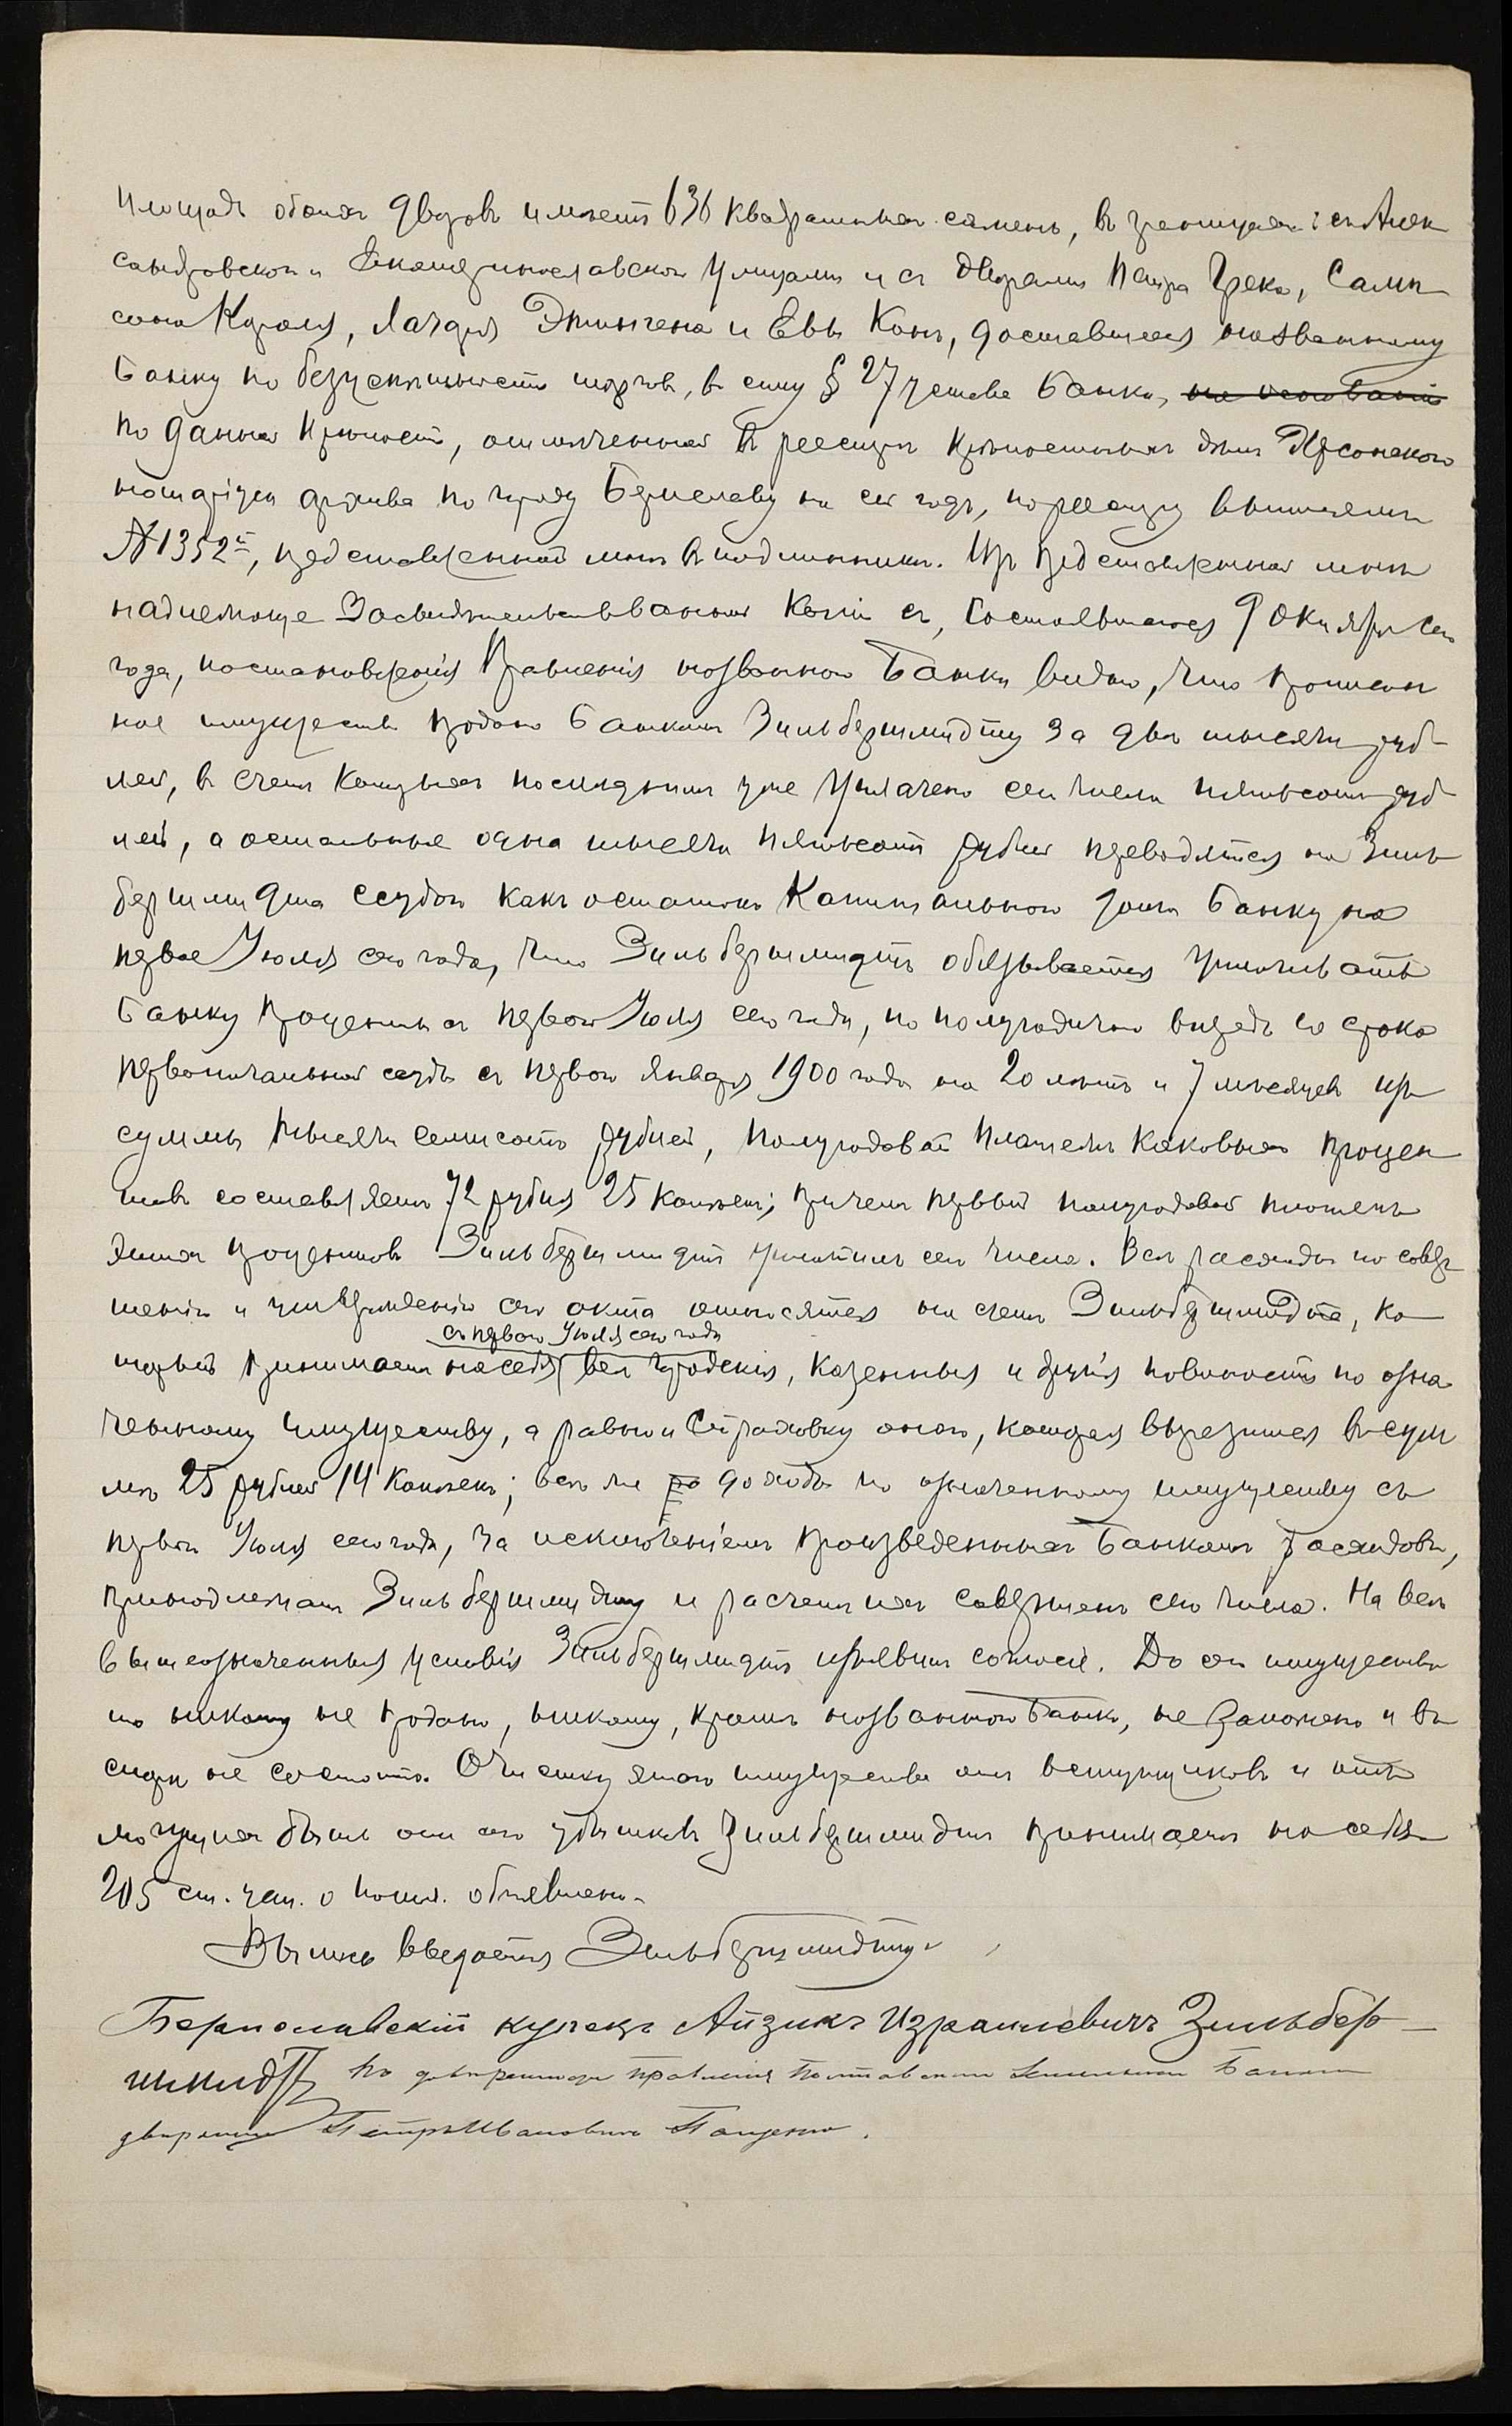 площадь обоихъ дворовъ имѣетъ 636 квадратныхъ сажень, въ границахъ: съ Алек
сандровской и Екатеринославской улицами и съ дворами Петра Грека, Самп
сона Короля, Лазаря Этингена и Евы Конъ, доставшееся названному
Банку по безуспѣшности торговъ, въ силу § 27 устава Банка, на основанiи
по данной крѣпости, отмѣченной въ реестрѣ крѣпостныхъ дѣлъ Херсонскаго
нотарiуса архива по городу Бериславу на сей годъ, по реестру
№ 1352й, представленной мнѣ въ подлинникѣ. Изъ представленной мнѣ
надлежаще засвидѣтельствованной копiи съ, состоявшагося 9 Октября сего
года, постановленiя Правленiя названнаго Банка видно, что прописан
ное имущество продано Банкомъ Зильбершмидту за двѣ тысячи руб
лей, въ счетъ которыхъ послѣднимъ уже уплачено сего числа пятьсотъ руб
лей, а остальные одна тысяча пятьсотъ рублей переводятся на Зиль
бершмидта ссудою какъ остатокъ капитальнаго долга Банку на
первое Iюля сего года, что Зильбершмидтъ обязывается уплачивать
Банку проценты съ перваго Iюля сего года, по полугодично впередъ со срока
первоначальной ссуды съ перваго Января 1900 года на 20 лѣтъ и 7 мѣсяцевъ изъ
суммы тысячи семисотъ рублей, полугодовой платежъ каковыхъ процен
товъ составляетъ 72 рубля 25 копѣекъ; причемъ первый полугодовой платежъ
этихъ процентовъ Зильбершмидтъ уплатилъ сего числа. Всѣ расходы по совер
шенiю и утвержденiю сего акта относятся на счетъ Зильбершмидта, ко
съ перваго Iюля сего года
торый принимаетъ на себя всѣ городскiя, казенныя и другiя повинности по озна
ченному имуществу, а равно и страховку онаго, которая выразится въ сум
мѣ 25 рублей 14 копѣекъ; всѣ же ра доходы по означенному имуществу съ
перваго Iюля сего года, за исключенiемъ произведенныхъ Банкомъ расходовъ,
принадлежатъ Зильбершмидту и расчетъ ихъ совершенъ сего числа. На всѣ
вышеозначенныя условiя Зильбершмидтъ изъявилъ согласiе. До сего имущество
то никому не продано, никому, кромѣ названнаго Банка, не заложено и въ
спорѣ не состоитъ. Очистку этого имущества отъ вступщиковъ и отъ
могущихъ быть отъ сего убытковъ Зильбершмидтъ принимаетъ на себя.
205 ст. уст. о пошл. объявлена.
Выпись выдается Зильбершмидту.
Бериславскiй купецъ Айзикъ Израилевичъ Зильбер-
шмидтъ По доверенности правленiя Полтавскаго Земельнаго Банка
дворянинъ Петръ Ивановичъ